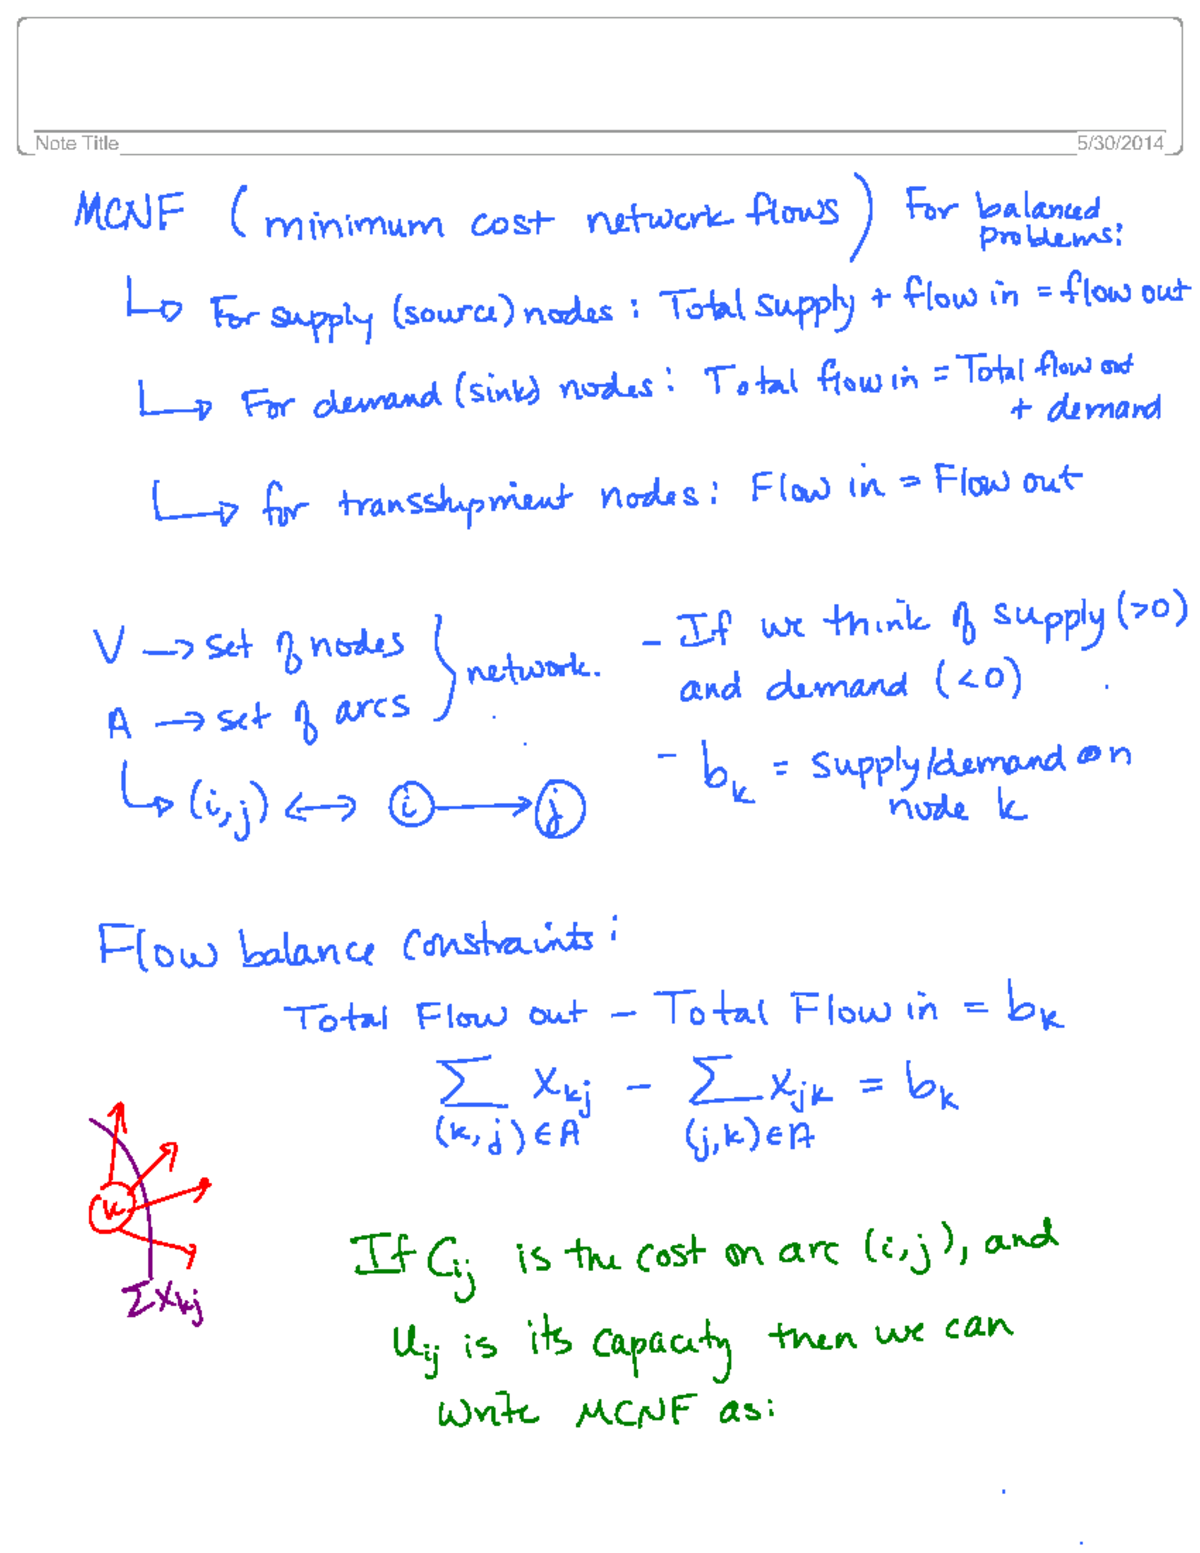 Note Title
5/30/2014
MCNF (minimum cost network flows) For balanced problems:
↳ For supply (source) nodes: Total supply + flow in = flow out
↳ For demand (sink) nodes: Total flow in = Total flow out
+ demand
↳ for transshipment nodes: Flow in = Flow out
V → set of nodes } network.
A → set of arcs
↳ (i,j) ↔ (i) → (j)
- If we think of supply (>0)
and demand (<0)
- b_k = supply/demand on
node k
Flow balance constraints:
Total Flow out - Total Flow in = b_k
∑ x_kj - ∑ x_jk = b_k
(k,j)∈A (j,k)∈A
k
∑x_kj
If C_ij is the cost on arc (i,j), and
u_ij is its capacity then we can
write MCNF as: